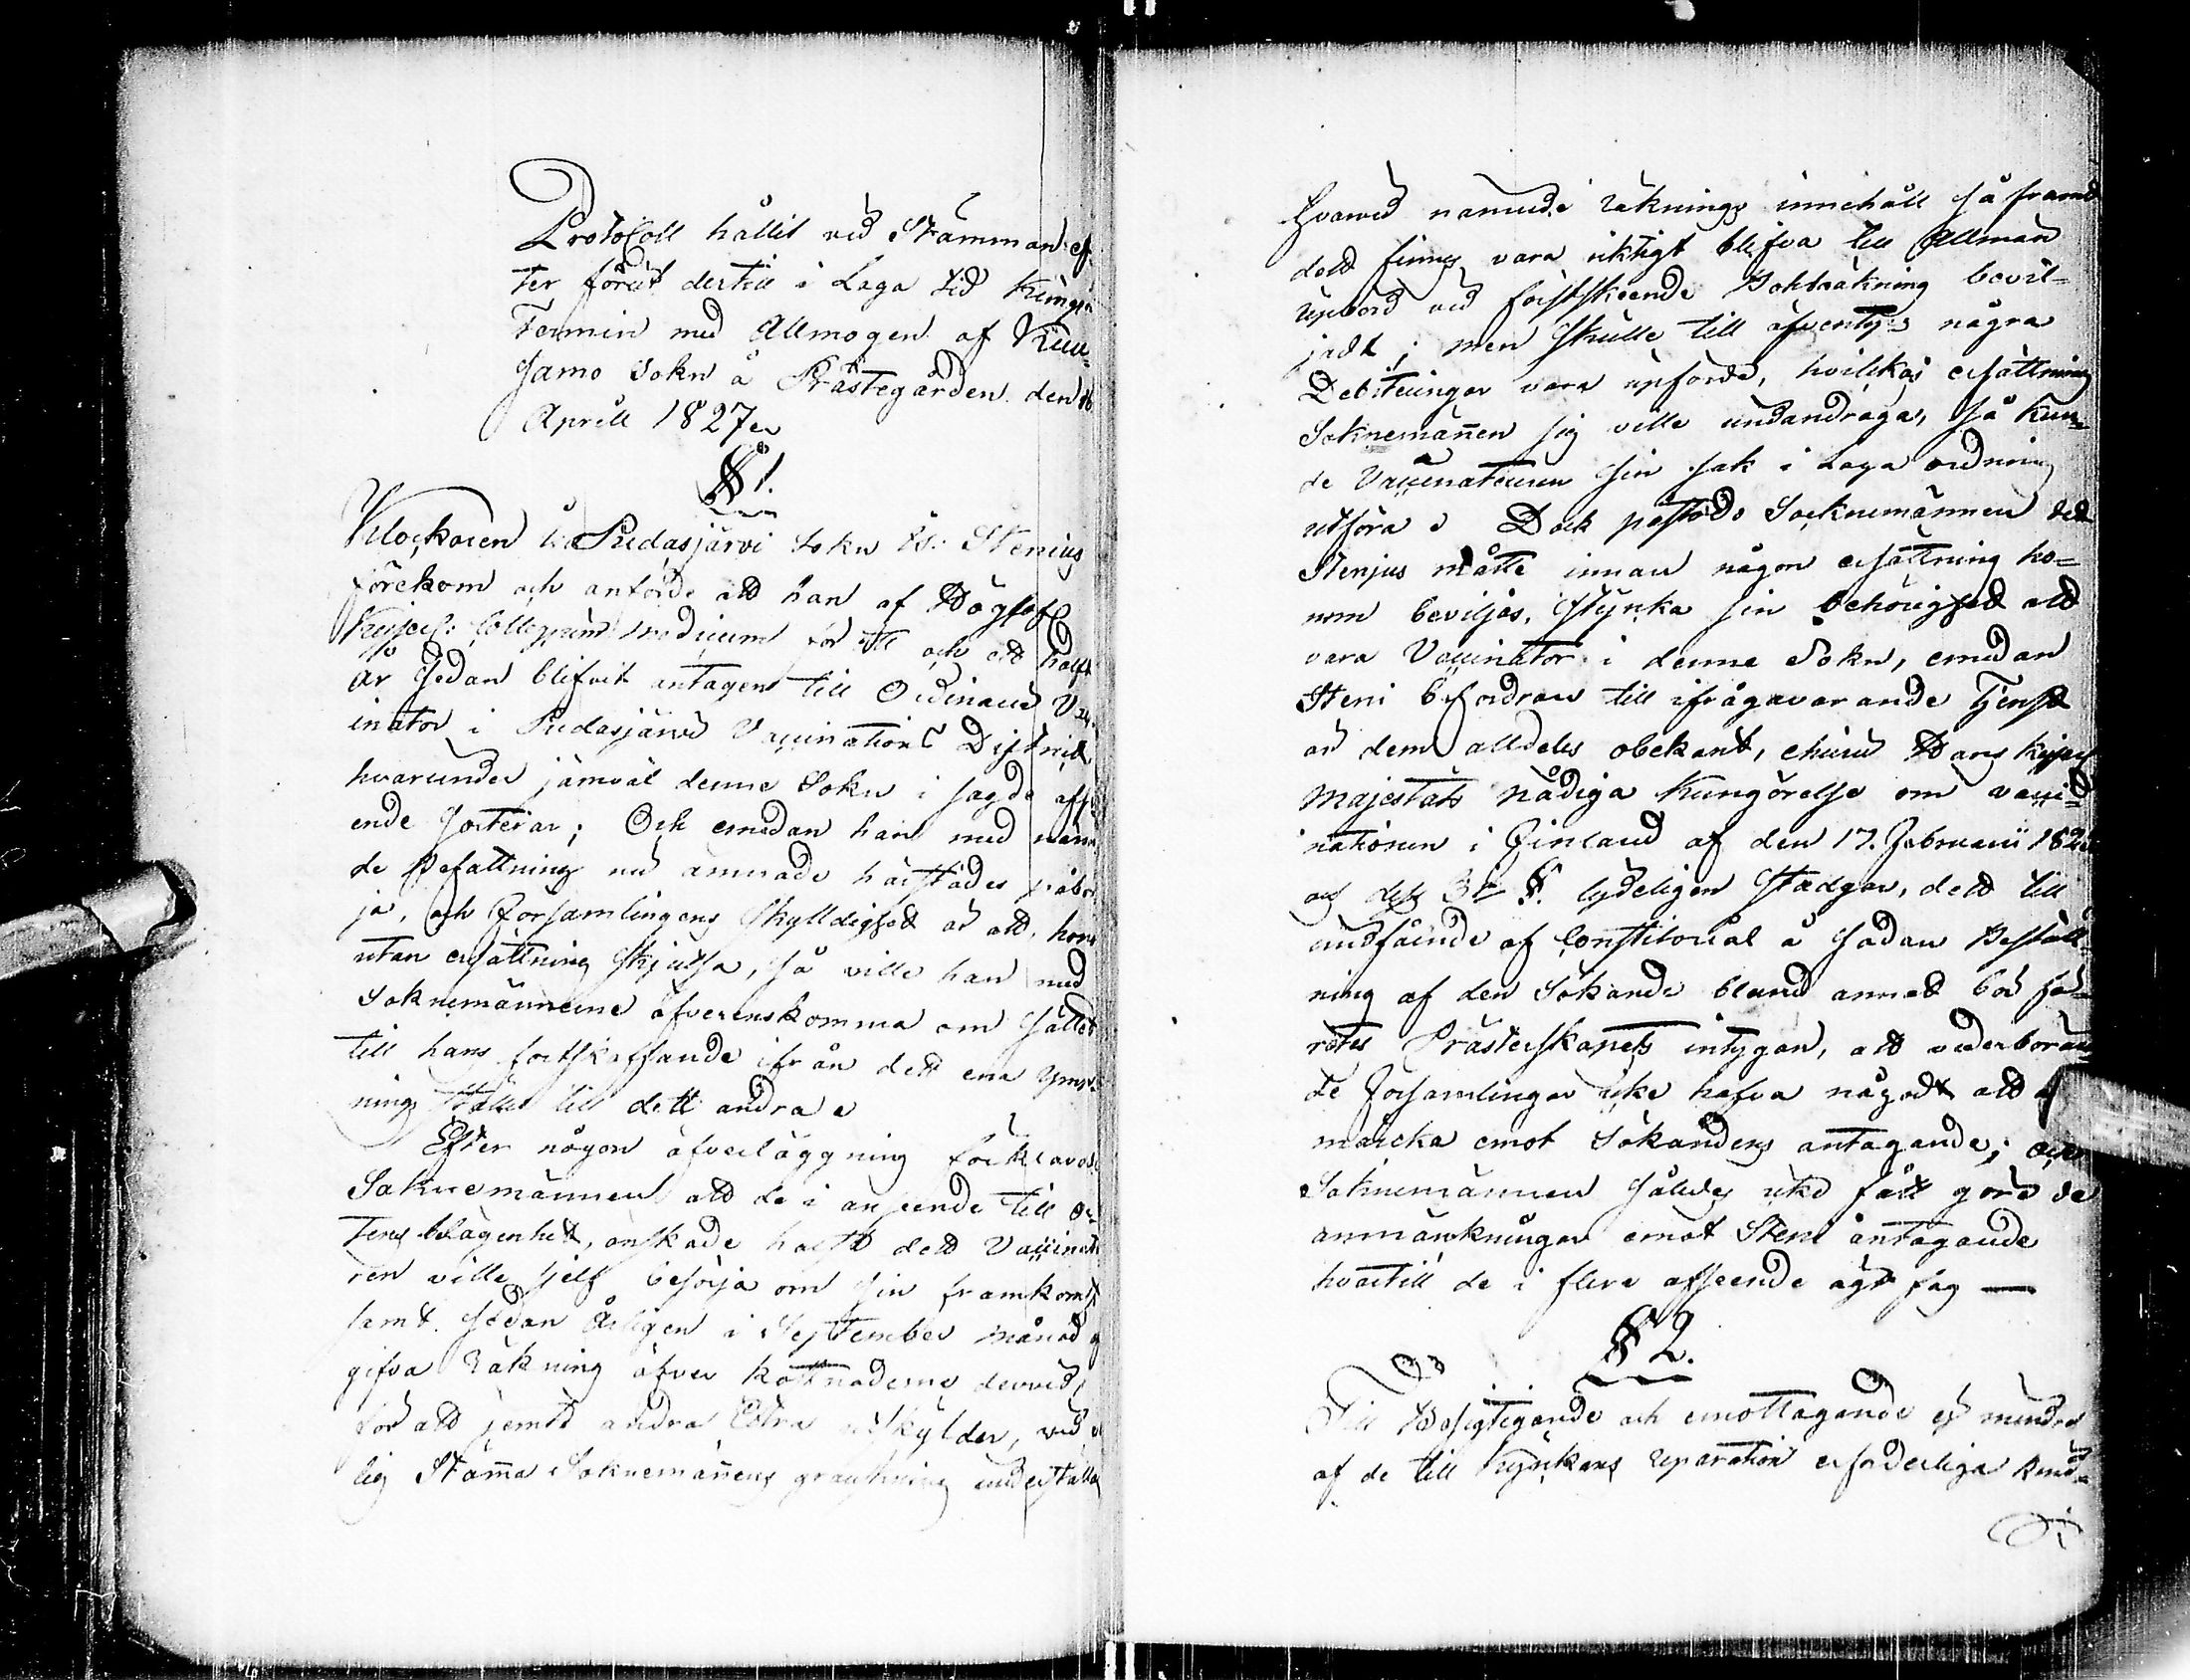 Protocoll hållit vid Stämman ef-
ter förut dertill i Laga tid kungjo
Termin med Allmogen af Kuu-
samo Sokn å Prästegården den 16
Aprill 1827
§ 1.
Klockaren i Pudasjärvi Sokn Is: Stenius
förekom och anförde att han af Höglofl
Kejserl: Collegium medicum för ett och ett halft
År sedan blifvit antagen till Ordinarie Vacc-
inator i Pudasjärvi Vaccinations District
hvarunder jämväl denne Sokn i sagde afse-
ende sorterar; Och emedan han med nämn
de Befattning nu ämnade härstädes påbör
ja, och Församlingens skylldighet är att hono
utan ersättning skjutsa, så ville han med
Soknemännerne öfverenskomma om sättet
till hans fortskaffande ifrån dett ena Ymp-
nings stället till dett andra
Efter någon öfverläggning förklarade
Soknemännen att de i anseende till Or
tens belägenhet, önskade hälst dett Vaccinato
ren ville sjelf besörja om sin framkomst
samt sedan Årligen i September månad
gifva Räkning öfver kostnaderne dervid
för att jemte andra Extra utskylder, vid
lig Stämma Soknemännens granskning underställas
hvarvid nämnde räknings innehåll så framt
dett finnes vara riktigt blifva till Allmän
upbörd vid förstskeende Bokbräkning bevil-
jadt; men skulle till äfventyrs några
Debiteringar vara upförde, hvilkas ersättning
Soknemännen sig ville undandraga, så kun-
de Vaccinateuren sin sak i Laga ordning
utföra Dock påstodo Socknemännen det
Stenius måtte innan någon ersättning ho-
nom beviljas, stynka sin behörighet att
vara Vaccinator i denne Sokn, emedan
Steni befordran till ifrågavarande Tjenst
är dem alldeles obekant, ehuru Hans Kejserl
Majestäts nådiga Kungörelse om vacci-
nationen i Finland af den 17. Februarii 182
och dess 3dje §. tydeligen stadgar, dett till
undfående af Constitorial å sådan Beställ-
ning af den Sökande bland annat bör fö-
retes Prästerskapets intygan, att vederböran-
de Församlingar icke hafva någodt att
märcka emot Sökandens antagande;
Soknemännen således icke fått göra de
anmärkningar emot Steni antagande
hvartill de i flere afseende ägt fog —
§ 2.
Till Besigtigande och emottagande mindre
af de till Kyrkans reparation erforderliga